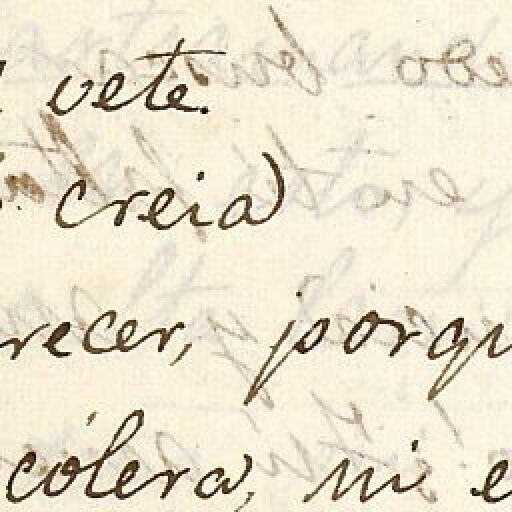 vete.
creia
recer, porqu
cólera, ni e